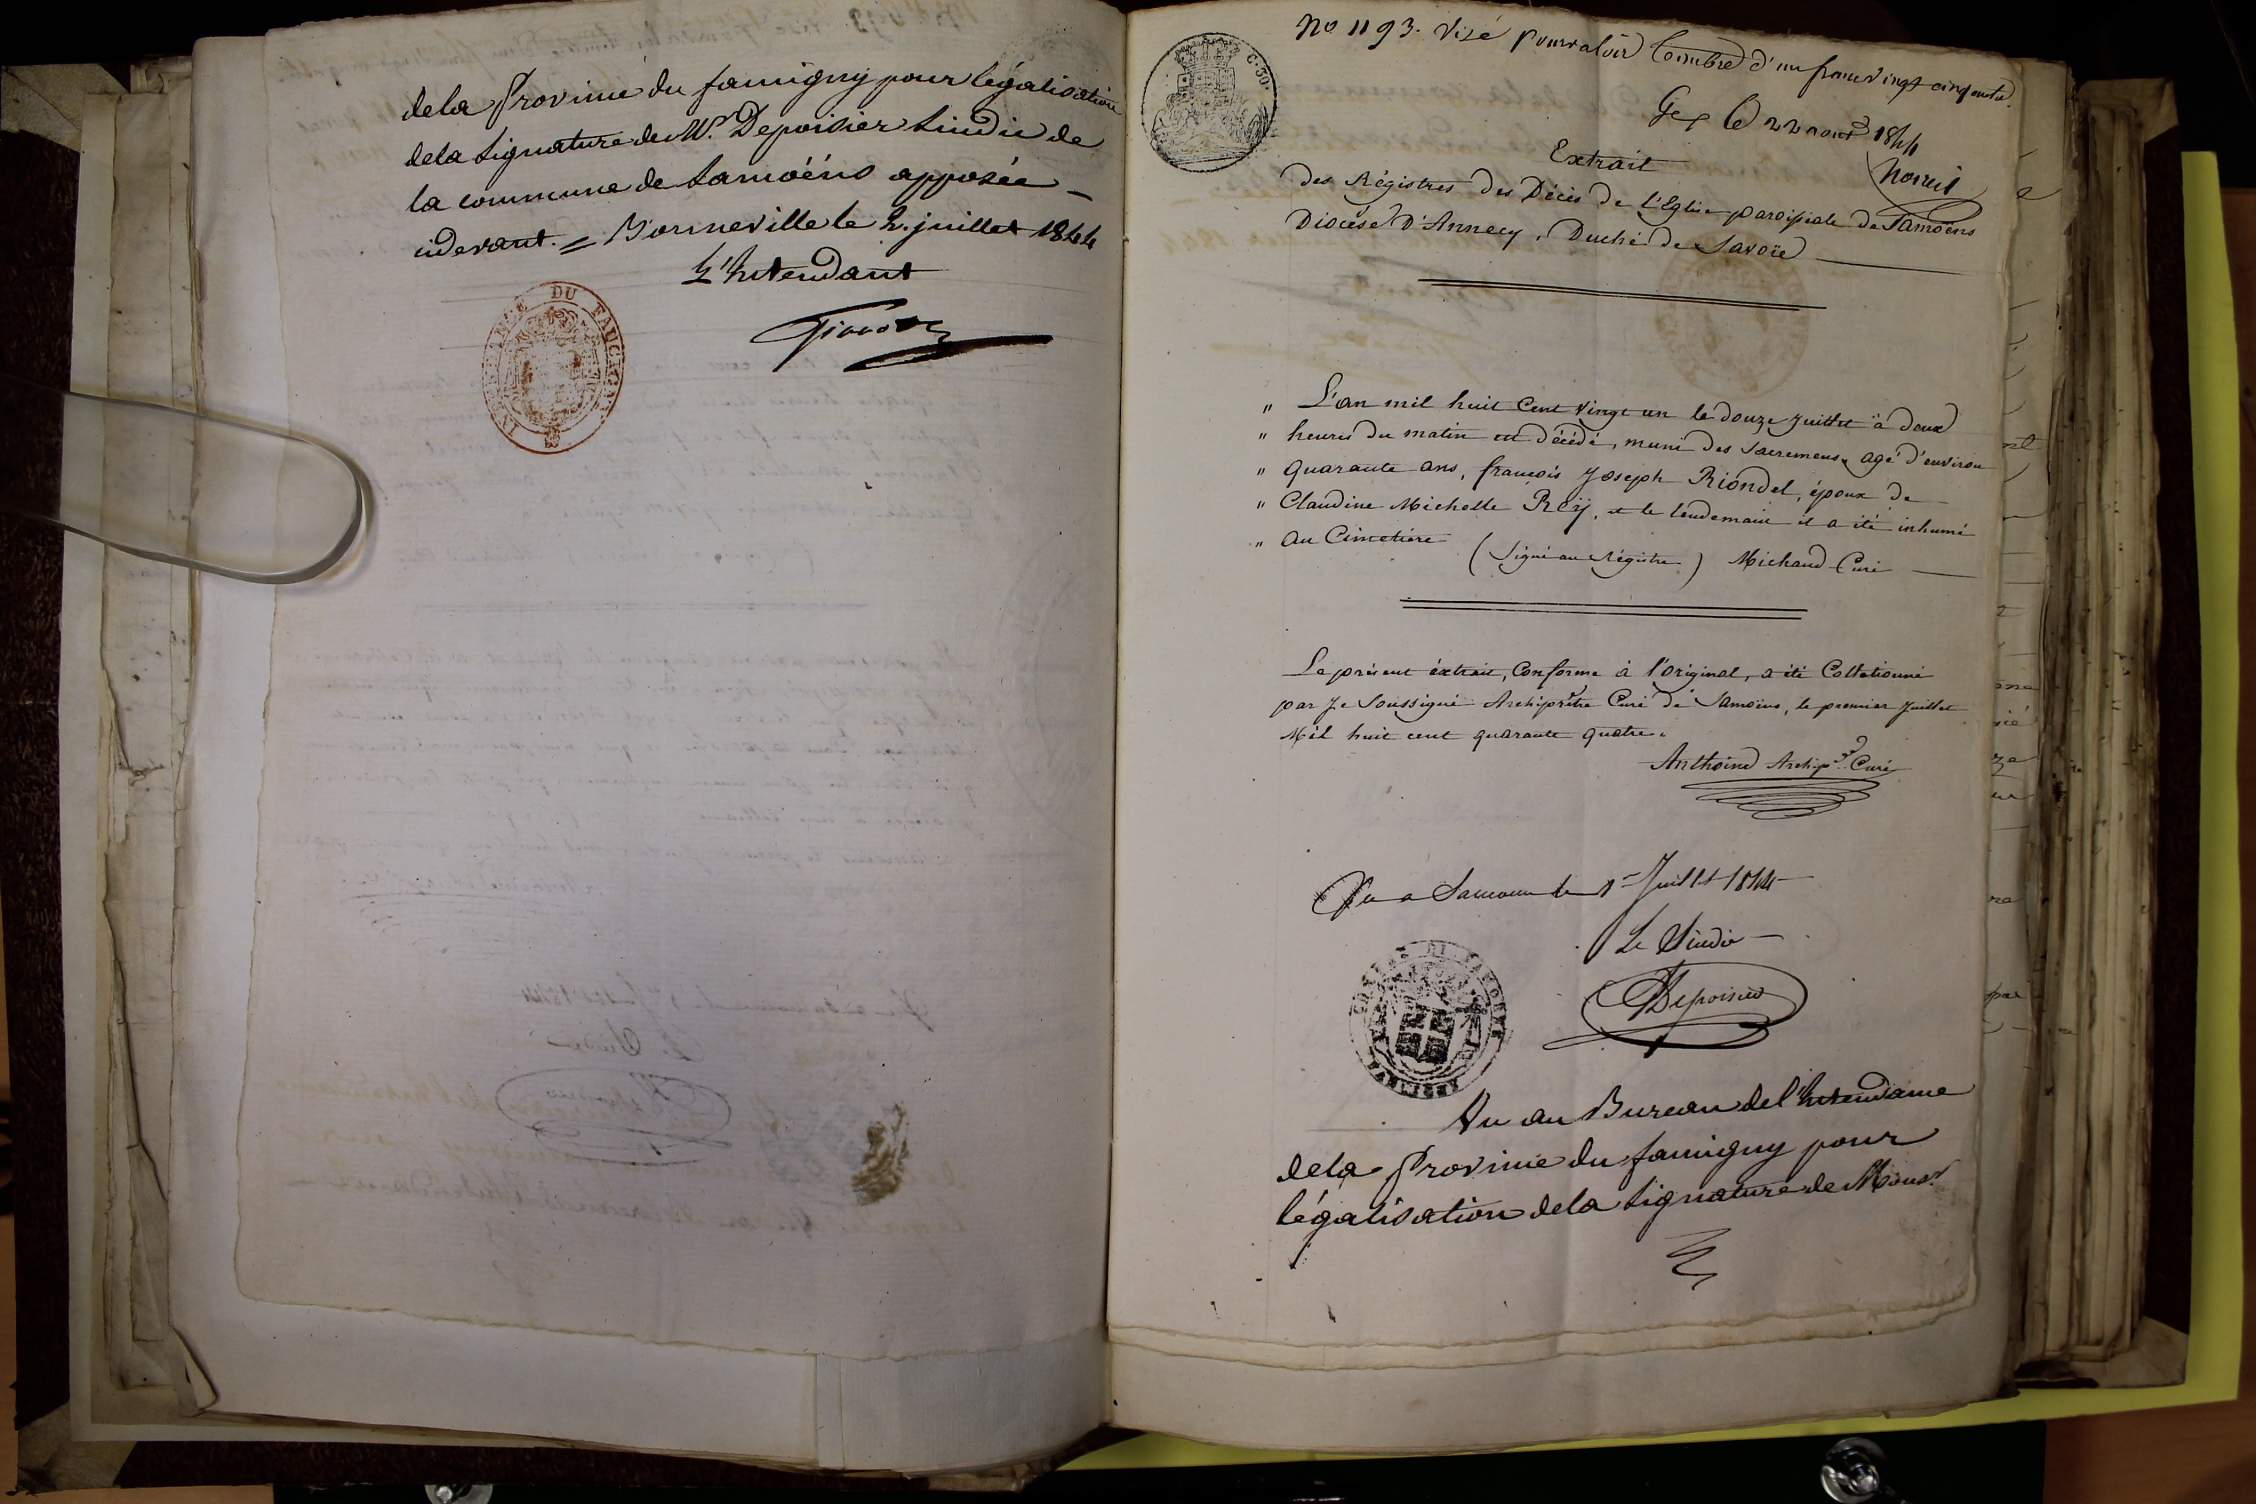 dela Province du faucigny pour légalisation
dela signature de Mr. Depoisier sindic de
la commune de Samoëns apposée
cidevant. = Bonneville le 2. juillet 1844
L'Intendant
INTENDANCE DU FAUCIGNY
C. 30.
No 1193. Visé pour valoir timbre d'un franc vingt cinq cent.
Gex le 22 aout 1844
Extrait
des Régistres des Décès de L'Eglise paroissiale de Samoëns
Diocèse D'Annecy, Duché de Savoïe
" L'an mil huit Cent vingt un le douze Juillet à deux
" heures du matin est décédé, muni des Sacremens, agé d'environ
" quarante ans, françois Joseph Riondel, époux de
" Claudine Michelle Reÿ, et le lendemain il a été inhumé
" au Cimetière (Signé au Régistre) Michaud Curé
Le présent éxtrait, Conforme à l'original, a été Collationné
par Je Soussigné Archiprêtre Curé de Samoëns, le premier Juillet
Mil huit cent quarante quatre.
Anthoine Archip. Curé
Vu a Samoens le 1er Juillet 1844
Le Sindic
Depoisier
Vu au Bureau de l'Intendance
dela Province du faucigny pour
légalisation dela signature de Monsr